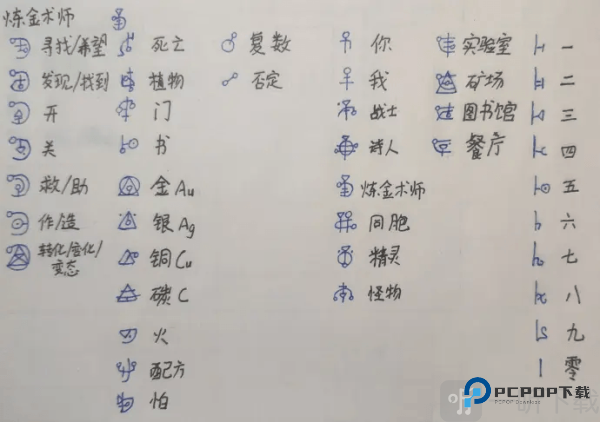 炼金术师
寻找/希望 死亡 复数 你 实验室 一
发现/找到 植物 否定 我 矿场 二
开 门 战士 图书馆 三
关 书 诗人 餐厅 四
救/助 金Au 炼金术师 五
作/造 银Ag 同胞 六
转化/变态 铜Cu 精灵 七
碳C 怪物 八
火 九
配方 零
怕
PCPOP下载
PCPOP Download